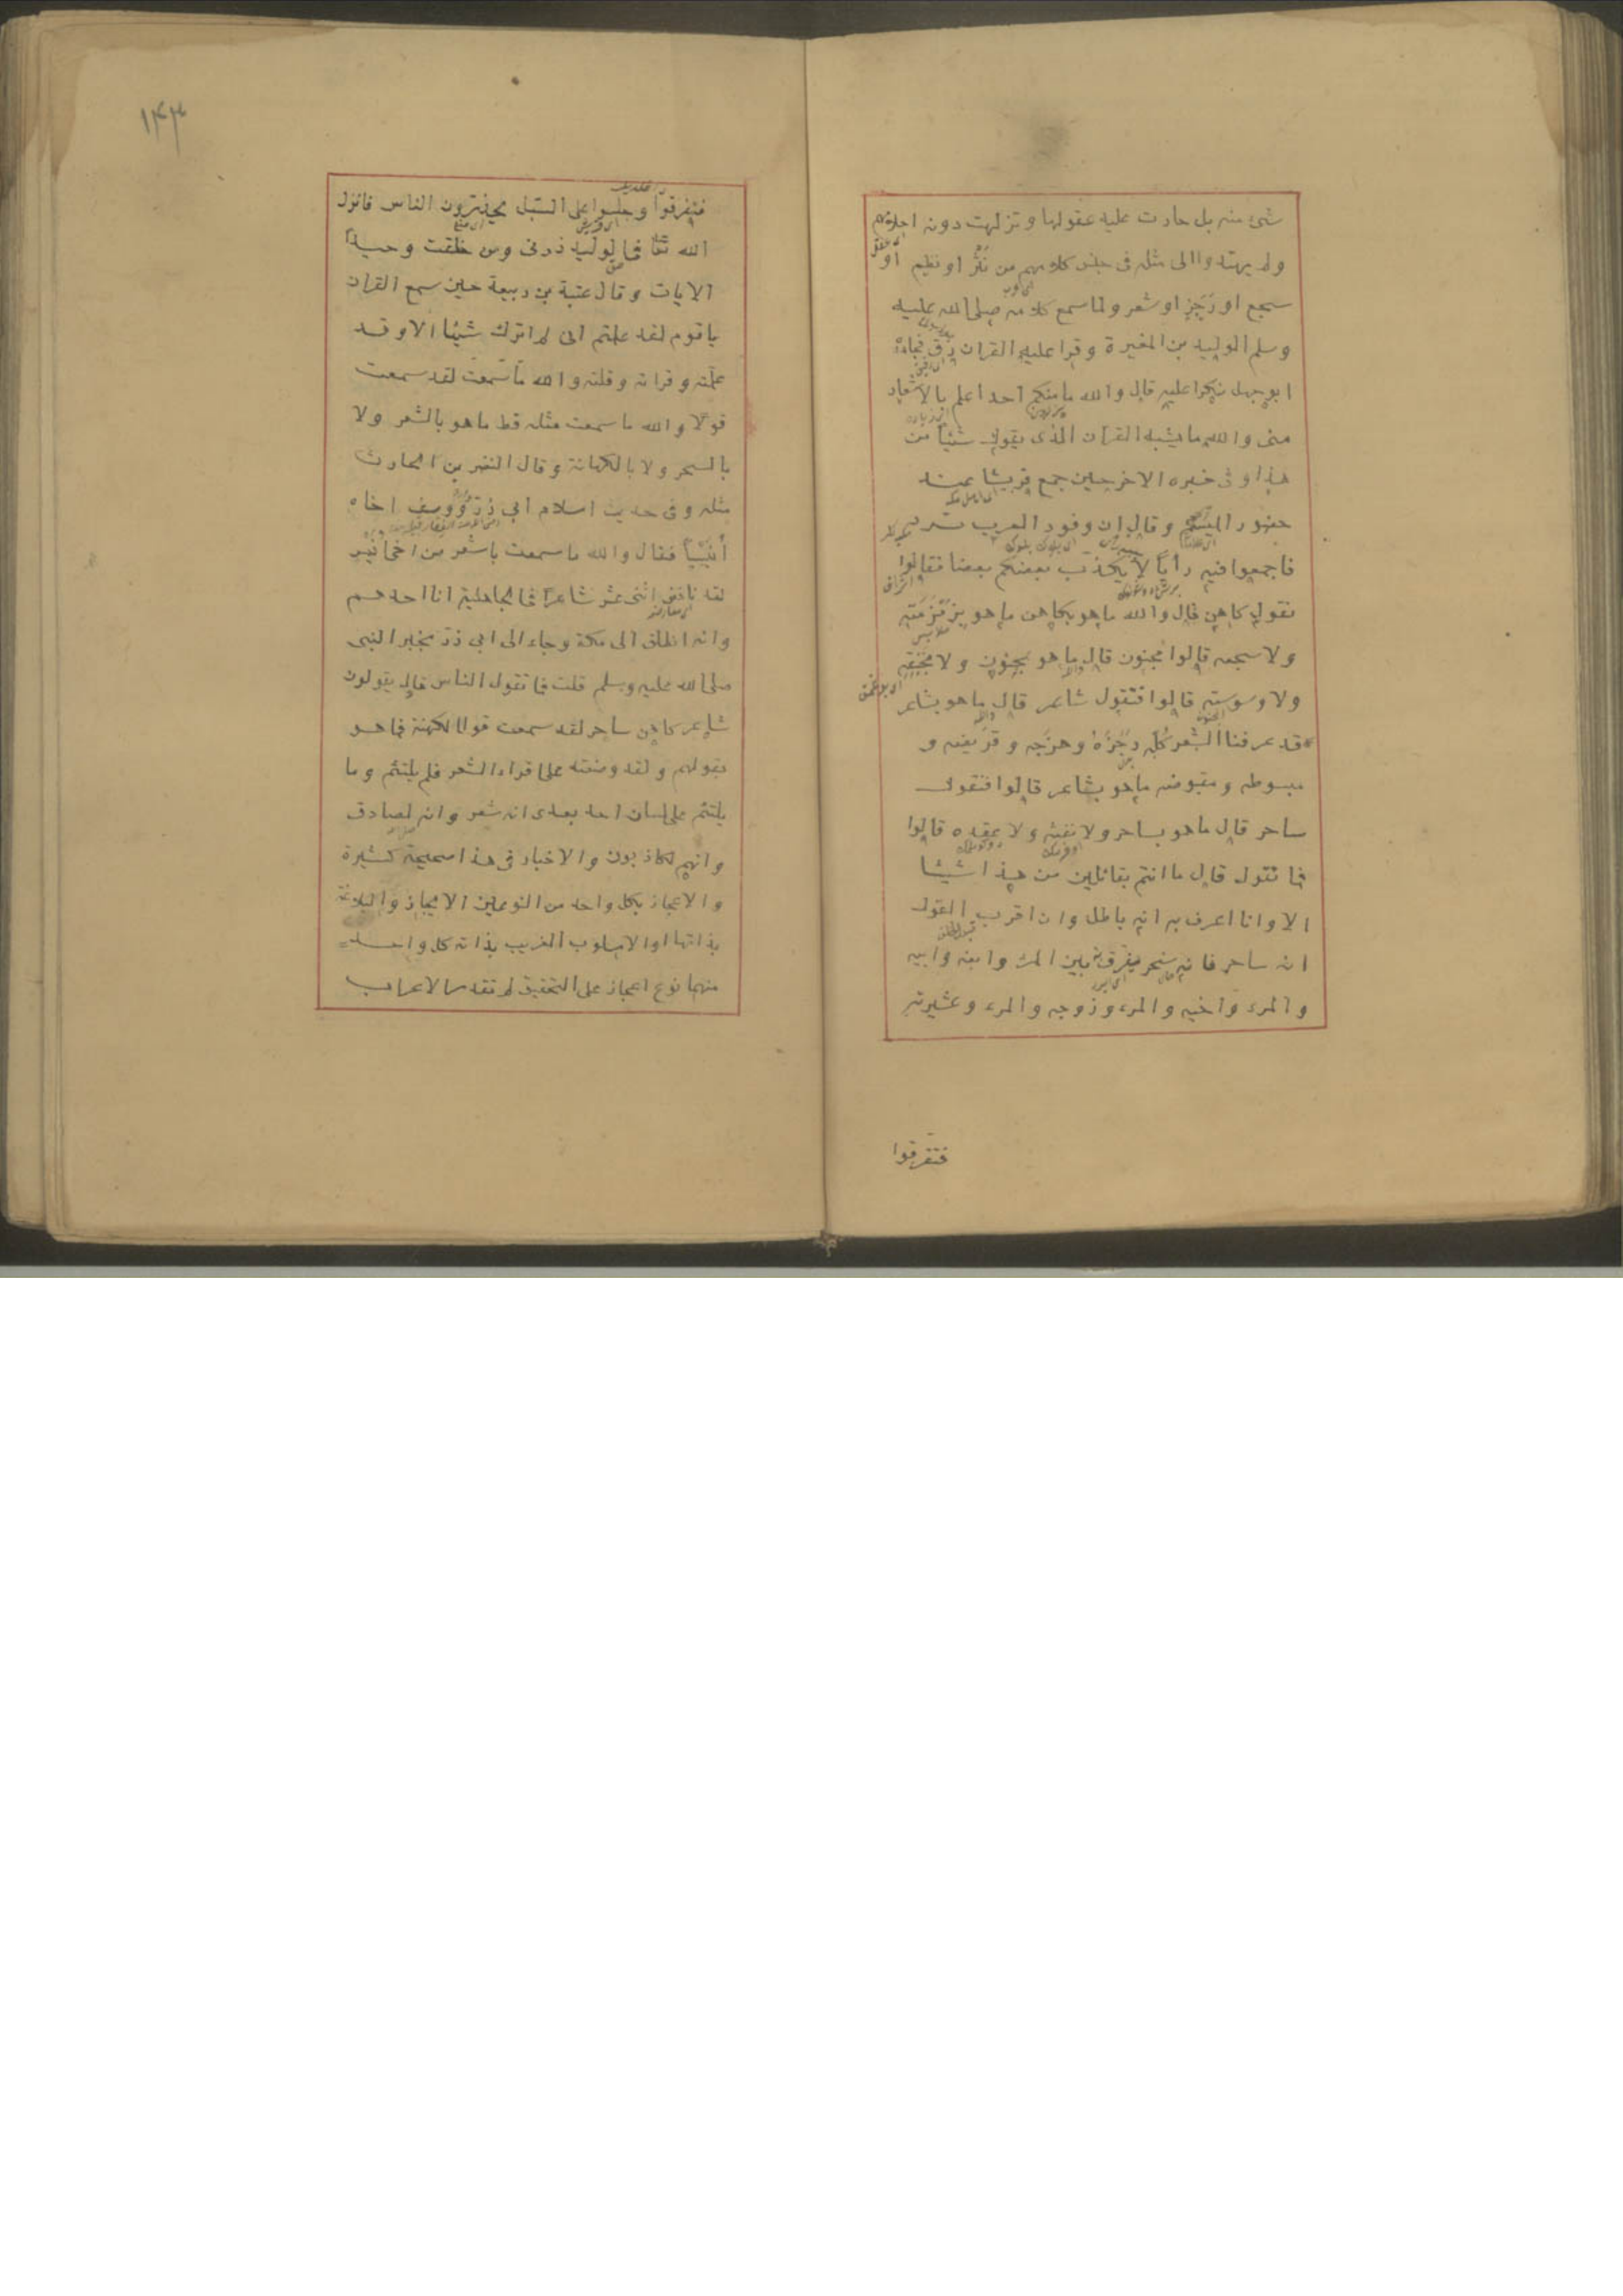 شئ منه بل حارت عليه عقولها وتزلهت دونه احلامهم
ولم يهتدوا الى مثله فى جنس كلامهم من نثر او نظم او
سجع او رَجَزٍ او شعر ولما سمع كلامه صلى الله عليه
وسلم الوليد بن المغيرة وقرا عليه القران رق فجاءه
ابو جهل منكرا عليه قال والله ما منكم احد اعلم بالاشعار
منى والله ما يشبه القران الذى يقول شيئا من
هذا وفى خبره الاخر حين جمع قريشا عند
حضور الموسم وقال ان وفود العرب ترد
فاجمعوا فيه رأيًا لا يكذب بعضكم بعضا فقالوا
نقول كاهن قال والله ما هو بكاهن ما هو بزمزمته
ولا سجعه قالوا مجنون قال ما هو بمجنون ولا بخنقه
ولا وسوسته قالوا فنقول شاعر قال ما هو بشاعر
قد عرفنا الشعر كُلّه رَجَزَهُ وهزجه وقريضه و
مبسوطه ومقبوضه ما هو بشاعر قالوا فنقول
ساحر قال ما هو بساحر ولا نفثه ولا عقده قالوا
فما نقول قال ما انتم بقائلين من هذا شيئا
الا وانا اعرف به انه باطل وان اقرب القول
انه ساحر فانه سحر يفرق به بين المرء وابنه وابيه
والمرء واخيه والمرء وزوجه والمرء وعشيرته
فتفرقوا
١٤٣
فتفرقوا وجلسوا على السبل يحذرون الناس فانزل
الله تعا فى الوليد ذرنى ومن خلقت وحيدا
الايات وقال عتبة بن ربيعة حين سمع القران
يا قوم لقد علمتم انى لم اترك شيئا الا وقد
علمته وقراته وقلته والله لقد سمعت
قولا والله ما سمعت مثله قط ما هو بالشعر ولا
بالسحر ولا بالكهانة وقال النضر بن الحارث
مثله وفى حديث اسلام ابى ذر ووصف اخاه
أُنَيْسًا فقال والله ما سمعت باشعر من اخى انيس
لقد ناقض اثنى عشر شاعرًا فى الجاهلية انا احدهم
وانه انطلق الى مكة وجاء الى ابى ذر بخبر النبى
صلى الله عليه وسلم قلت فما تقول الناس قال يقولون
شاعر كاهن ساحر لقد سمعت قول الكهنة فما هو
بقولهم ولقد وضعته على اقراء الشعر فلم يلتئم وما
يلتئم على لسان احد بعدى انه شعر وانه لصادق
وانهم لكاذبون والاخبار فى هذا صحيحة كثيرة
والاعجاز بكل واحد من النوعين الايجاز والبلاغة
بذاتها او الاسلوب الغريب بذاته كل واحد
منهما نوع اعجاز على التحقيق لم تقدر الاعراب